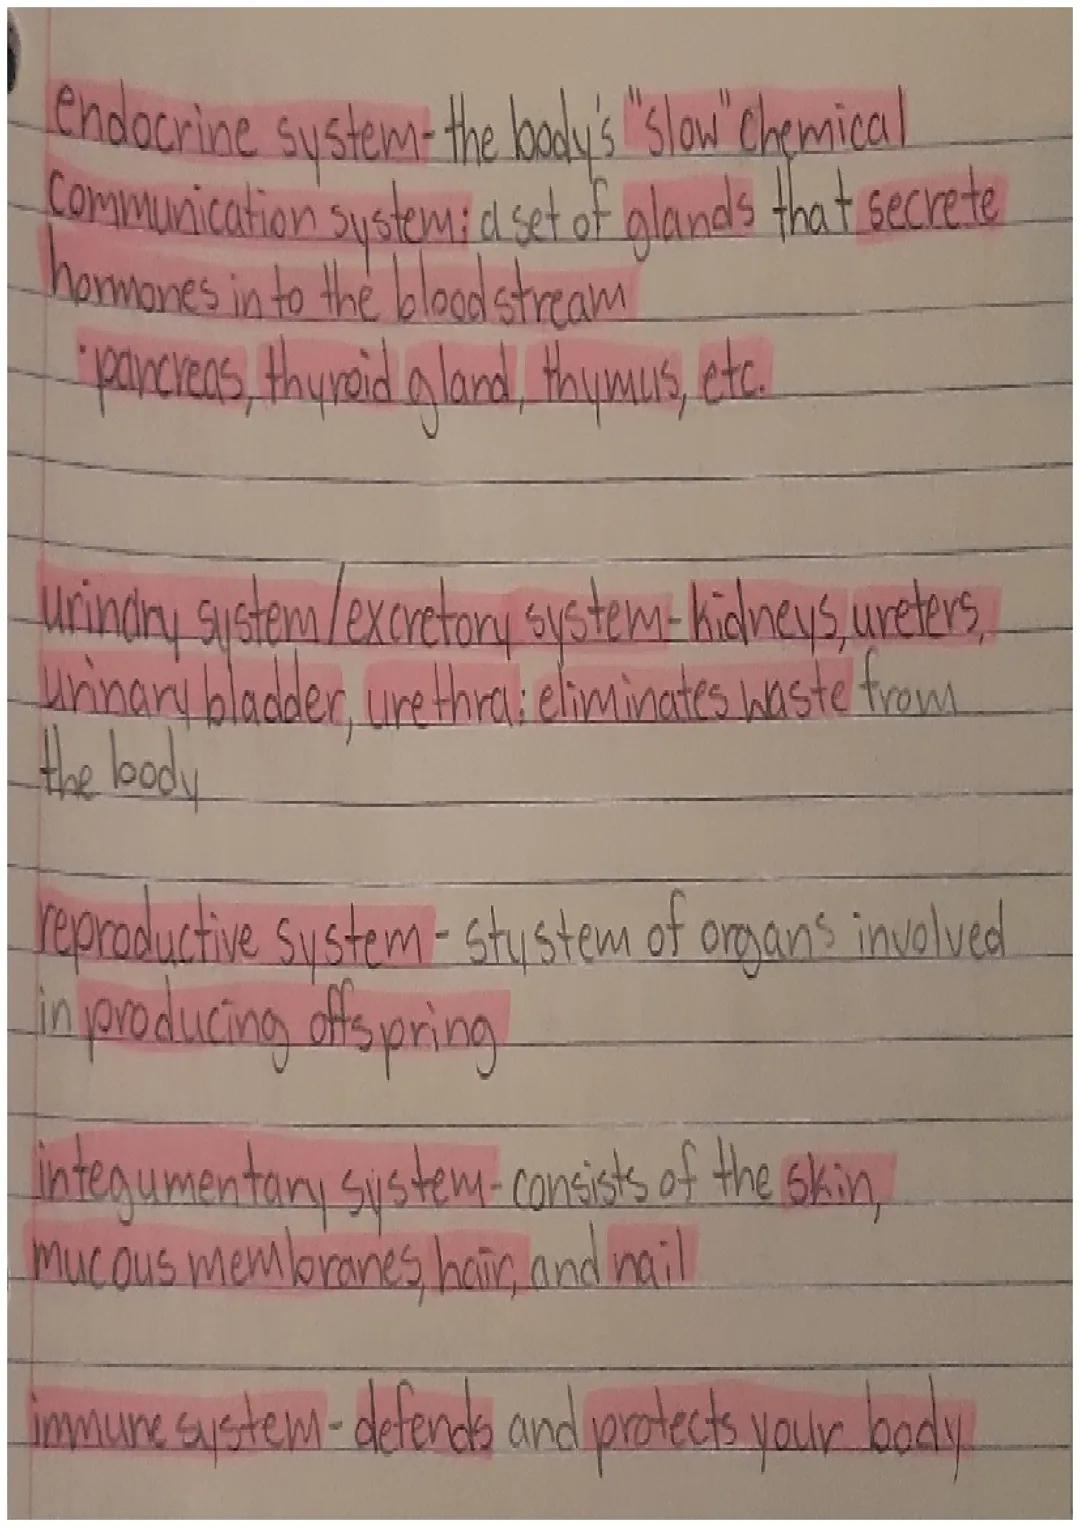 endocrine system- the body's "slow" chemical
communication system; a set of glands that secrete
hormones in to the bloodstream
·pancreas, thyroid gland, thymus, etc.
urinary system/excretory system- kidneys, ureters,
urinary bladder, urethra; eliminates waste from
the body
reproductive system- stystem of organs involved
in producing offspring
integumentary system- consists of the skin,
mucous membranes, hair, and nail
immune system- defends and protects your body